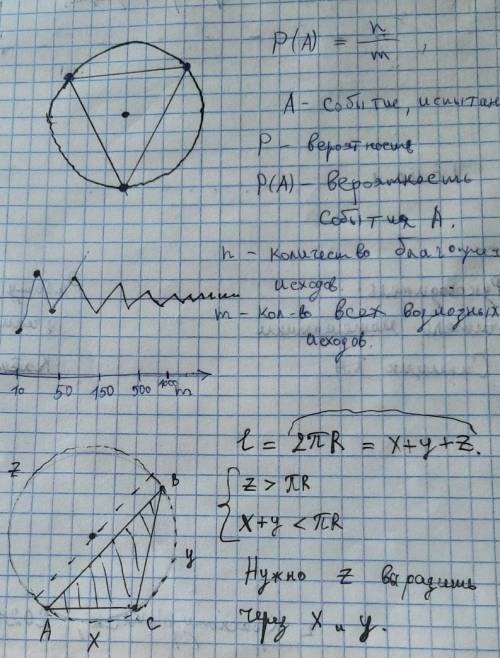 P(A) = n/m,
A - событие, испытан
P - вероятность
P(A) - вероятность
события A.
n - количество благопр
исходов.
m - кол-во всех возможных
исходов.
10 50 150 500 1000 m
l = 2πR = x+y+z.
z > πR
x+y < πR
Нужно z выразить
через x и y.
z
B
y
A
x
C